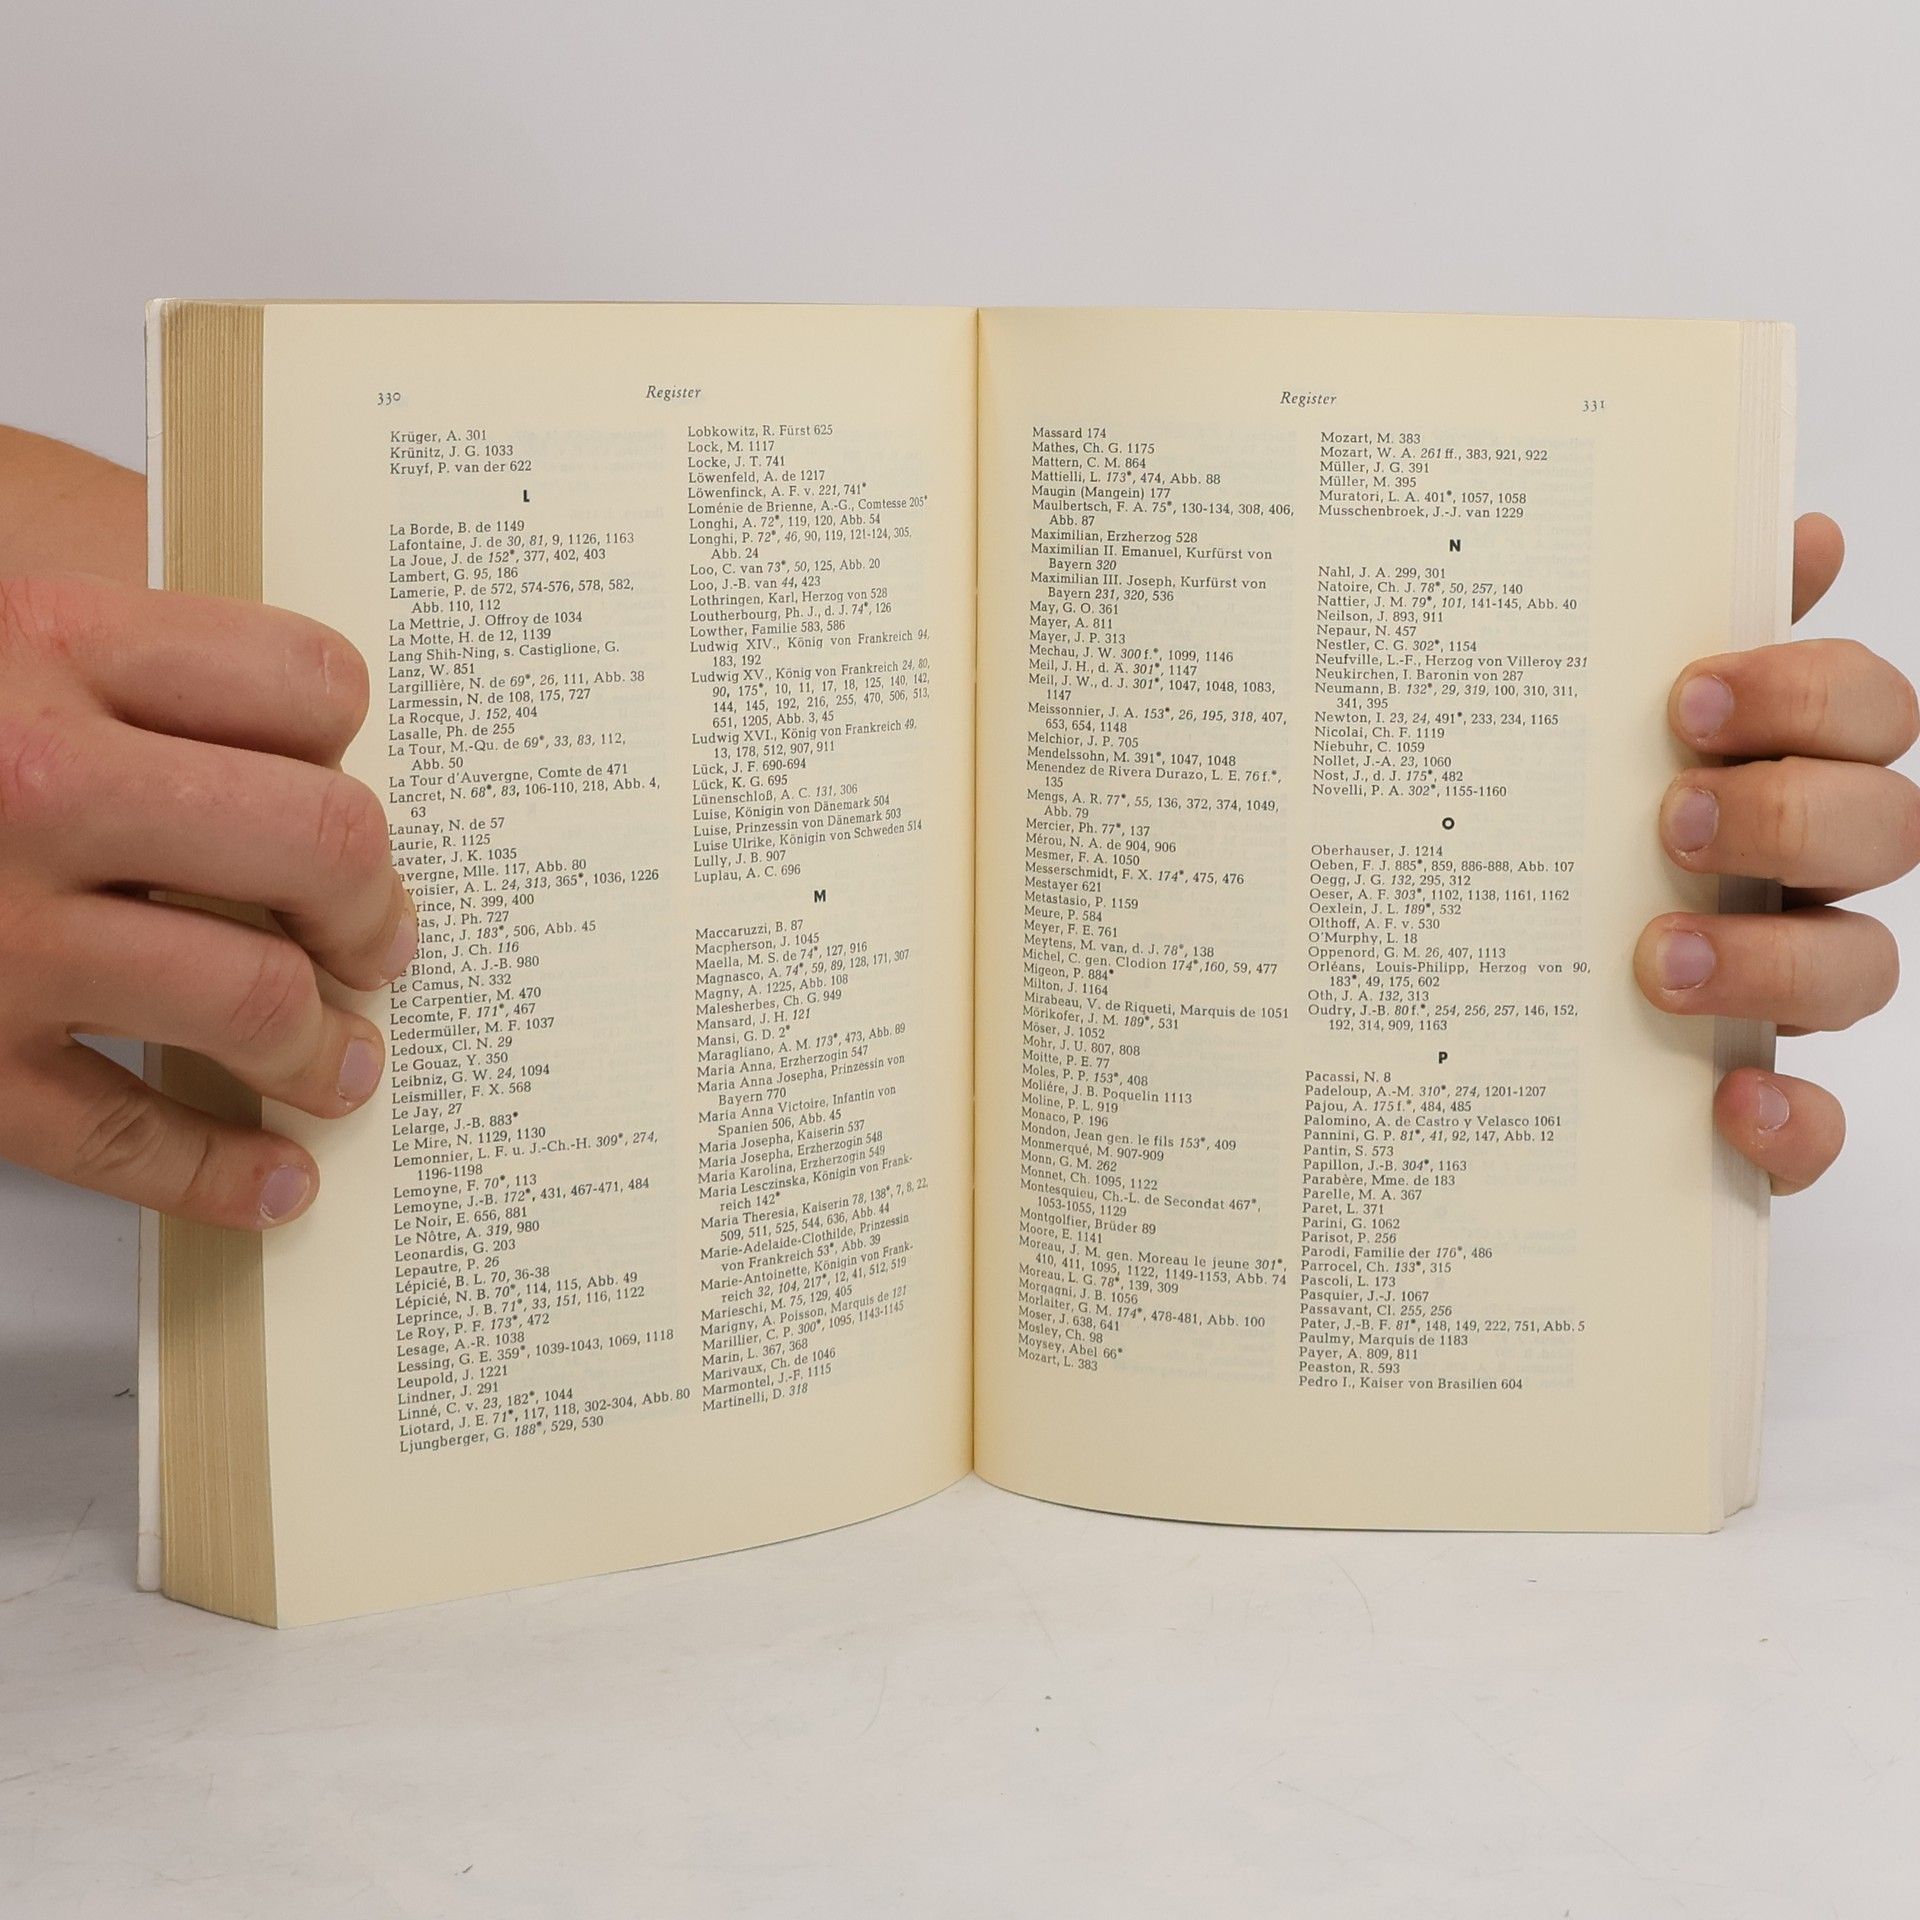 330
Register
Krüger, A. 301
Krünitz, J. G. 1033
Kruyf, P. van der 622
L
La Borde, B. de 1149
Lafontaine, J. de 30, 81, 9, 1126, 1163
La Joue, J. de 152*, 377, 402, 403
Lambert, G. 95, 186
Lamerie, P. de 572, 574-576, 578, 582,
Abb. 110, 112
La Mettrie, J. Offroy de 1034
La Motte, H. de 12, 1139
Lang Shih-Ning, s. Castiglione, G.
Lanz, W. 851
Largillière, N. de 69*, 26, 111, Abb. 38
Larmessin, N. de 108, 175, 727
La Rocque, J. 152, 404
Lasalle, Ph. de 255
La Tour, M.-Qu. de 69*, 33, 83, 112,
Abb. 50
La Tour d'Auvergne, Comte de 471
Lancret, N. 68*, 83, 106-110, 218, Abb. 4,
63
Launay, N. de 57
Laurie, R. 1125
Lavater, J. K. 1035
avergne, Mlle. 117, Abb. 80
voisier, A. L. 24, 313, 365*, 1036, 1226
rince, N. 399, 400
Bas, J. Ph. 727
lanc, J. 183*, 506, Abb. 45
Blon, J. Ch. 116
e Blond, A. J.-B. 980
Le Camus, N. 332
Le Carpentier, M. 470
Lecomte, F. 171*, 467
Ledermüller, M. F. 1037
Ledoux, Cl. N. 29
Le Gouaz, Y. 350
Leibniz, G. W. 24, 1094
Leismiller, F. X. 568
Le Jay, 27
Lelarge, J.-B. 883*
Le Mire, N. 1129, 1130
Lemonnier, L. F. u. J.-Ch.-H. 309*, 274,
1196-1198
Lemoyne, F. 70*, 113
Lemoyne, J.-B. 172*, 431, 467-471, 484
Le Noir, E. 656, 881
Le Nôtre, A. 319, 980
Leonardis, G. 203
Lepautre, P. 26
Lépicié, B. L. 70, 36-38
Lépicié, N. B. 70*, 114, 115, Abb. 49
Leprince, J. B. 71*, 33, 151, 116, 1122
Le Roy, P. F. 173*, 472
Lesage, A.-R. 1038
Lessing, G. E. 359*, 1039-1043, 1069, 1118
Leupold, J. 1221
Lindner, J. 291
Linné, C. v. 23, 182*, 1044
Liotard, J. E. 71*, 117, 118, 302-304, Abb. 80
Ljungberger, G. 188*, 529, 530
Lobkowitz, R. Fürst 625
Lock, M. 1117
Locke, J. T. 741
Löwenfeld, A. de 1217
Löwenfinck, A. F. v. 221, 741*
Loménie de Brienne, A.-G., Comtesse 205*
Longhi, A. 72*, 119, 120, Abb. 54
Longhi, P. 72*, 46, 90, 119, 121-124, 305,
Abb. 24
Loo, C. van 73*, 50, 125, Abb. 20
Loo, J.-B. van 44, 423
Lothringen, Karl, Herzog von 528
Loutherbourg, Ph. J., d. J. 74*, 126
Lowther, Familie 583, 586
Ludwig XIV., König von Frankreich 94,
183, 192
Ludwig XV., König von Frankreich 24, 80,
90, 175*, 10, 11, 17, 18, 125, 140, 142,
144, 145, 192, 216, 255, 470, 506, 513,
651, 1205, Abb. 3, 45
Ludwig XVI., König von Frankreich 49,
13, 178, 512, 907, 911
Lück, J. F. 690-694
Lück, K. G. 695
Lünenschloß, A. C. 131, 306
Luise, Königin von Dänemark 504
Luise, Prinzessin von Dänemark 503
Luise Ulrike, Königin von Schweden 514
Lully, J. B. 907
Luplau, A. C. 696
M
Maccaruzzi, B. 87
Macpherson, J. 1045
Maella, M. S. de 74*, 127, 916
Magnasco, A. 74*, 59, 89, 128, 171, 307
Magny, A. 1225, Abb. 108
Malesherbes, Ch. G. 949
Mansard, J. H. 121
Mansi, G. D. 2*
Maragliano, A. M. 173*, 473, Abb. 89
Maria Anna, Erzherzogin 547
Maria Anna Josepha, Prinzessin von
Bayern 770
Maria Anna Victoire, Infantin von
Spanien 506, Abb. 45
Maria Josepha, Kaiserin 537
Maria Josepha, Erzherzogin 548
Maria Karolina, Erzherzogin 549
Maria Lesczinska, Königin von Frank-
reich 142*
Maria Theresia, Kaiserin 78, 138*, 7, 8, 22,
509, 511, 525, 544, 636, Abb. 44
Marie-Adelaide-Clothilde, Prinzessin
von Frankreich 53*, Abb. 39
Marie-Antoinette, Königin von Frank-
reich 32, 104, 217*, 12, 41, 512, 519
Marieschi, M. 75, 129, 405
Marigny, A. Poisson, Marquis de 121
Marillier, C. P. 300*, 1095, 1143-1145
Marin, L. 367, 368
Marivaux, Ch. de 1046
Marmontel, J.-F. 1115
Martinelli, D. 318
Register
331
Massard 174
Mathes, Ch. G. 1175
Mattern, C. M. 864
Mattielli, L. 173*, 474, Abb. 88
Maugin (Mangein) 177
Maulbertsch, F. A. 75*, 130-134, 308, 406,
Abb. 87
Maximilian, Erzherzog 528
Maximilian II. Emanuel, Kurfürst von
Bayern 320
Maximilian III. Joseph, Kurfürst von
Bayern 231, 320, 536
May, G. O. 361
Mayer, A. 811
Mayer, J. P. 313
Mechau, J. W. 300 f.*, 1099, 1146
Meil, J. H., d. Ä. 301*, 1147
Meil, J. W., d. J. 301*, 1047, 1048, 1083,
1147
Meissonnier, J. A. 153*, 26, 195, 318, 407,
653, 654, 1148
Melchior, J. P. 705
Mendelssohn, M. 391*, 1047, 1048
Menendez de Rivera Durazo, L. E. 76 f.*,
135
Mengs, A. R. 77*, 55, 136, 372, 374, 1049,
Abb. 79
Mercier, Ph. 77*, 137
Mérou, N. A. de 904, 906
Mesmer, F. A. 1050
Messerschmidt, F. X. 174*, 475, 476
Mestayer 621
Metastasio, P. 1159
Meure, P. 584
Meyer, F. E. 761
Meytens, M. van, d. J. 78*, 138
Michel, C. gen. Clodion 174*,160, 59, 477
Migeon, P. 884*
Milton, J. 1164
Mirabeau, V. de Riqueti, Marquis de 1051
Mörikofer, J. M. 189*, 531
Möser, J. 1052
Mohr, J. U. 807, 808
Moitte, P. E. 77
Moles, P. P. 153*, 408
Moliére, J. B. Poquelin 1113
Moline, P. L. 919
Monaco, P. 196
Mondon, Jean gen. le fils 153*, 409
Monmerqué, M. 907-909
Monn, G. M. 262
Monnet, Ch. 1095, 1122
Montesquieu, Ch.-L. de Secondat 467*,
1053-1055, 1129
Montgolfier, Brüder 89
Moore, E. 1141
Moreau, J. M. gen. Moreau le jeune 301*,
410, 411, 1095, 1122, 1149-1153, Abb. 74
Moreau, L. G. 78*, 139, 309
Morgagni, J. B. 1056
Morlaiter, G. M. 174*, 478-481, Abb. 100
Moser, J. 638, 641
Mosley, Ch. 98
Moysey, Abel 66*
Mozart, L. 383
Mozart, M. 383
Mozart, W. A. 261 ff., 383, 921, 922
Müller, J. G. 391
Müller, M. 395
Muratori, L. A. 401*, 1057, 1058
Musschenbroek, J.-J. van 1229
N
Nahl, J. A. 299, 301
Natoire, Ch. J. 78*, 50, 257, 140
Nattier, J. M. 79*, 101, 141-145, Abb. 40
Neilson, J. 893, 911
Nepaur, N. 457
Nestler, C. G. 302*, 1154
Neufville, L.-F., Herzog von Villeroy 231
Neukirchen, I. Baronin von 287
Neumann, B. 132*, 29, 319, 100, 310, 311,
341, 395
Newton, I. 23, 24, 491*, 233, 234, 1165
Nicolai, Ch. F. 1119
Niebuhr, C. 1059
Nollet, J.-A. 23, 1060
Nost, J., d. J. 175*, 482
Novelli, P. A. 302*, 1155-1160
O
Oberhauser, J. 1214
Oeben, F. J. 885*, 859, 886-888, Abb. 107
Oegg, J. G. 132, 295, 312
Oeser, A. F. 303*, 1102, 1138, 1161, 1162
Oexlein, J. L. 189*, 532
Olthoff, A. F. v. 530
O'Murphy, L. 18
Oppenord, G. M. 26, 407, 1113
Orléans, Louis-Philipp, Herzog von 90,
183*, 49, 175, 602
Oth, J. A. 132, 313
Oudry, J.-B. 80 f.*, 254, 256, 257, 146, 152,
192, 314, 909, 1163
P
Pacassi, N. 8
Padeloup, A.-M. 310*, 274, 1201-1207
Pajou, A. 175 f.*, 484, 485
Palomino, A. de Castro y Velasco 1061
Pannini, G. P. 81*, 41, 92, 147, Abb. 12
Pantin, S. 573
Papillon, J.-B. 304*, 1163
Parabère, Mme. de 183
Parelle, M. A. 367
Paret, L. 371
Parini, G. 1062
Parisot, P. 256
Parodi, Familie der 176*, 486
Parrocel, Ch. 133*, 315
Pascoli, L. 173
Pasquier, J.-J. 1067
Passavant, Cl. 255, 256
Pater, J.-B. F. 81*, 148, 149, 222, 751, Abb. 5
Paulmy, Marquis de 1183
Payer, A. 809, 811
Peaston, R. 593
Pedro I., Kaiser von Brasilien 604